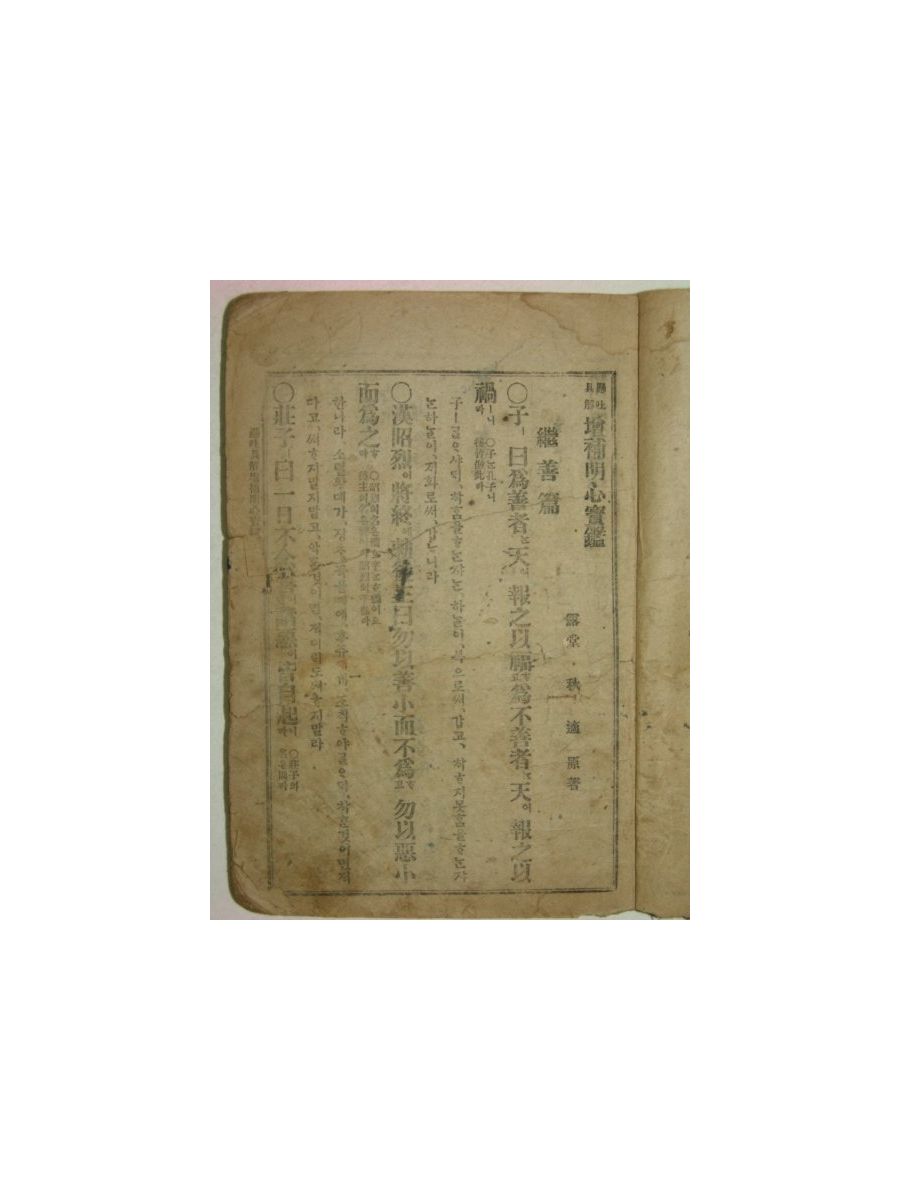 懸吐具解 增補明心寶鑑
露堂 秋 適 原著
繼善篇
○子ㅣ曰爲善者는天이報之以福고爲不善者는天이報之以
禍ㅣ니라 ○子는孔子니後皆倣此라
子ㅣ갈ᄋᆞ샤ᄃᆡ,착ᄒᆞᆷ을ᄒᆞᄂᆞᆫ쟈ᄂᆞᆫ,하ᄂᆞᆯ이,복으로써,갑고,착ᄒᆞ지못ᄒᆞᆷ을ᄒᆞᄂᆞᆫ쟈
ᄂᆞᆫ하ᄂᆞᆯ이,재화로써,갑ᄂᆞ니라
○漢昭烈이將終에勅後主曰勿以善小而不爲ᄒᆞ고勿以惡小
而爲之ᄒᆞ라
한나라,소렬황뎨가, ᄒᆞ야갈ᄋᆞᄃᆡ,착ᄒᆞᆫ것이면져
다고,써ᄒᆞ지말지말고,악ᄒᆞᆫ것이면,젹이라도써ᄒᆞ지말라
○莊子ㅣ曰一日不念善이면諸惡이皆自起니라 ○莊子의名은周라